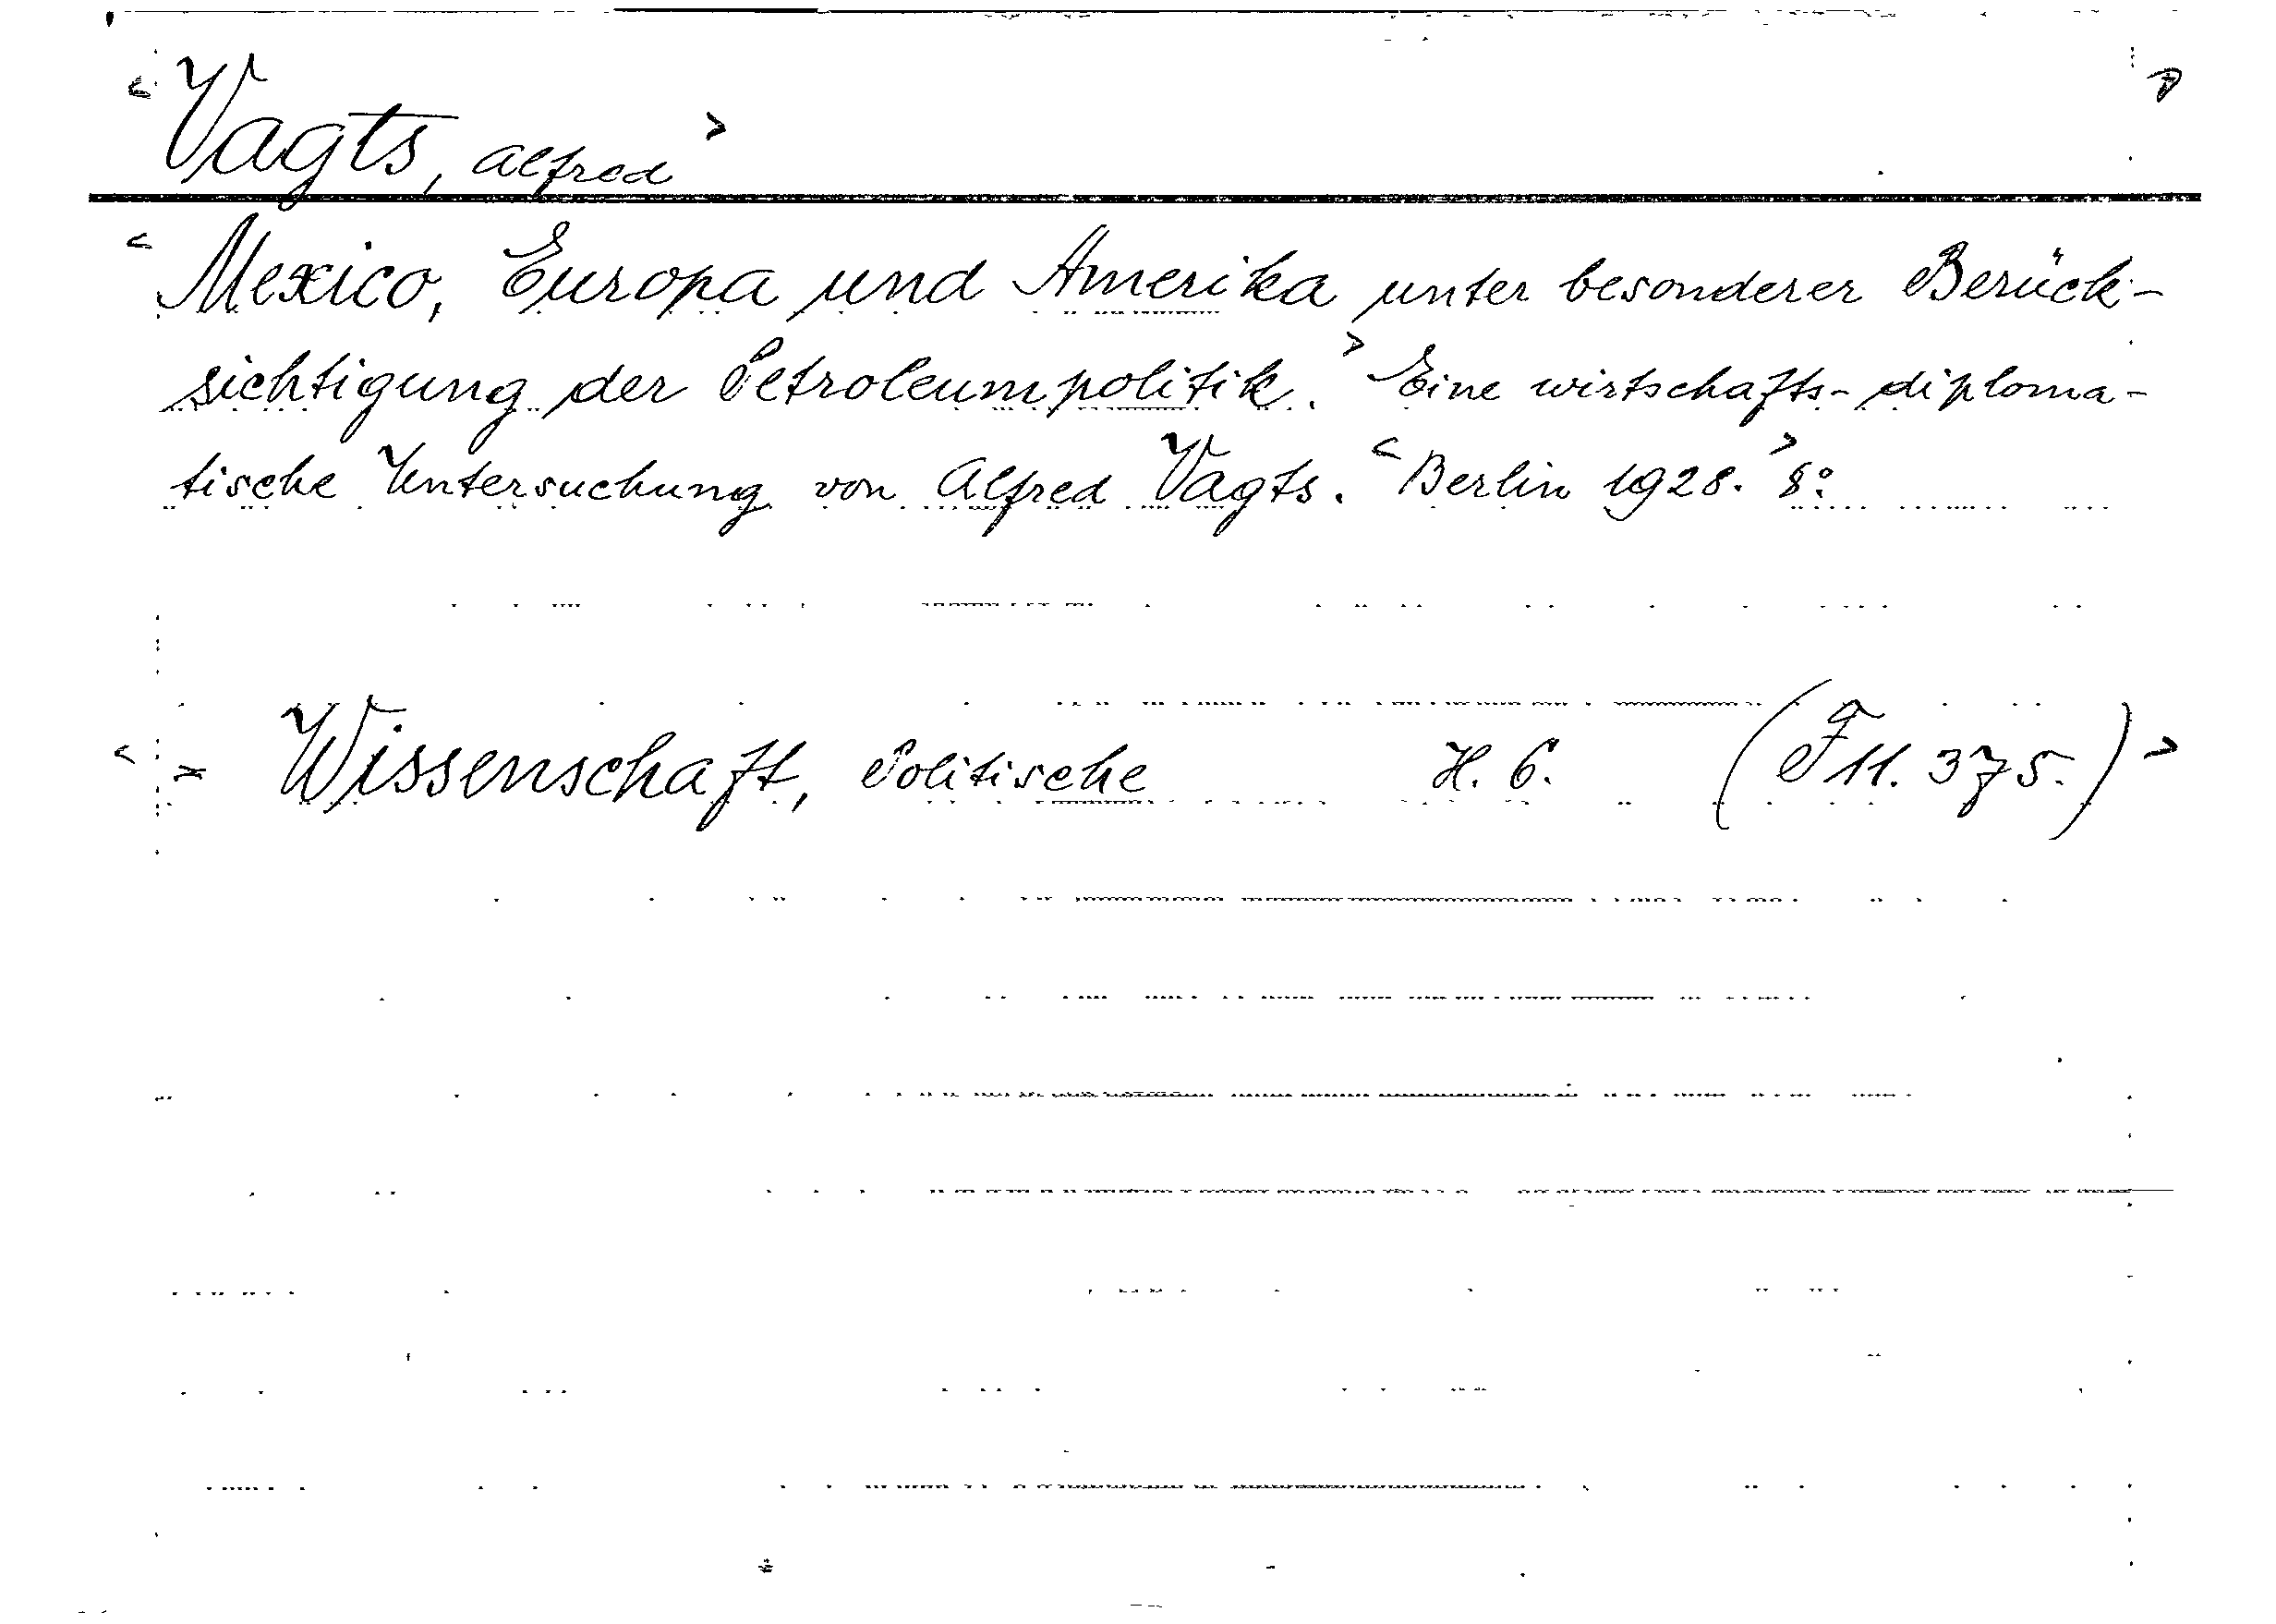 < Vagts, Alfred >
< Mexico, Europa und Amerika unter besonderer Berück-
sichtigung der Petroleumpolitik. > Eine wirtschafts-diploma-
tische Untersuchung von Alfred Vagts. < Berlin 1928. > 8°.
< = Wissenschaft, Politische H. 6. (F 11. 375.) >